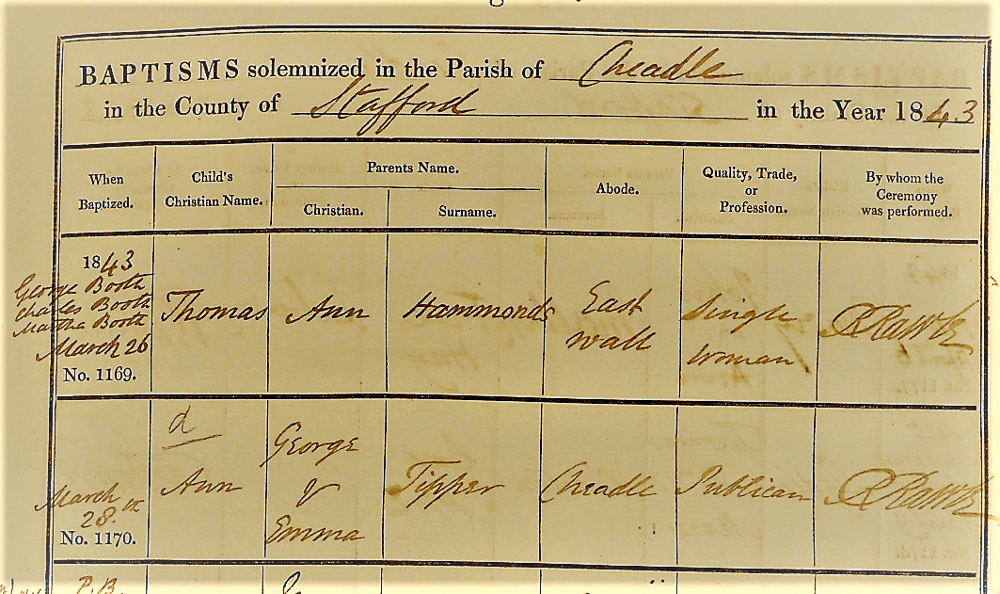 BAPTISMS solemnized in the Parish of Cheadle
in the County of Stafford in the Year 1843
When Baptized.
Child's Christian Name.
Parents Name.
Christian.
Surname.
Abode.
Quality, Trade, or Profession.
By whom the Ceremony was performed.
1843
George Booth
Charles Booth
Martha Booth
March 26
No. 1169.
Thomas
Ann
Hammonds
East
wall
Single
Woman
d
March
28.
No. 1170.
Ann
George
&
Emma
Tipper
Cheadle
Publican
P.B.